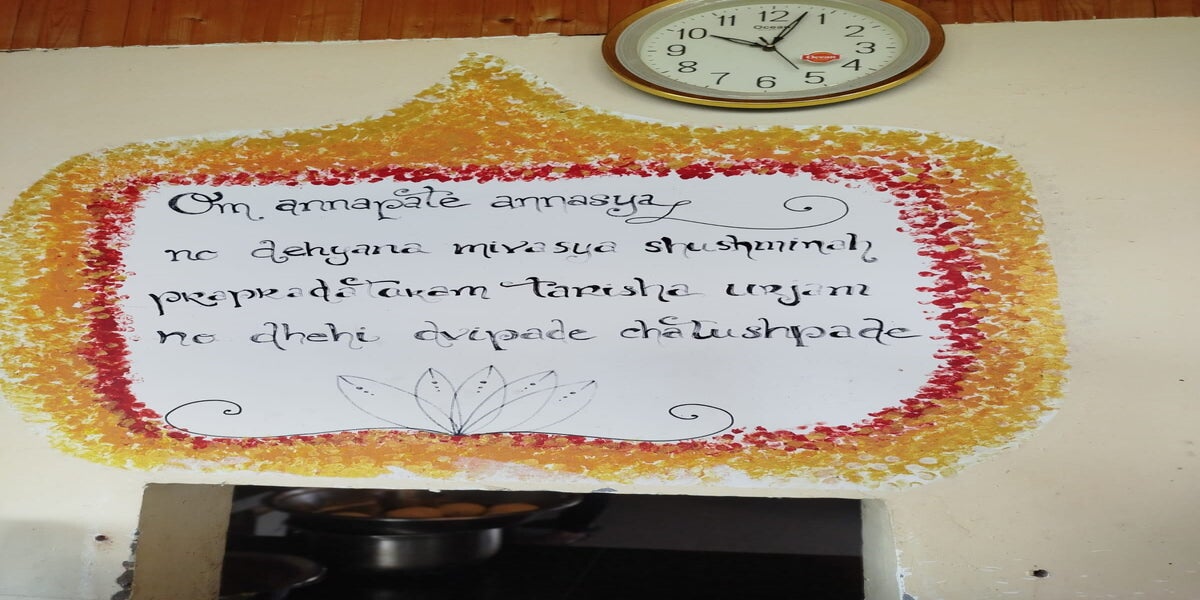 12
11
1
Ocean
10
2
9
3
Ocean
8
4
7
5
6
Om. annapate annasya
no dehyana mivasya shushminah
prapradātāram tarisha urjam
no dhehi dvipade chatushpade